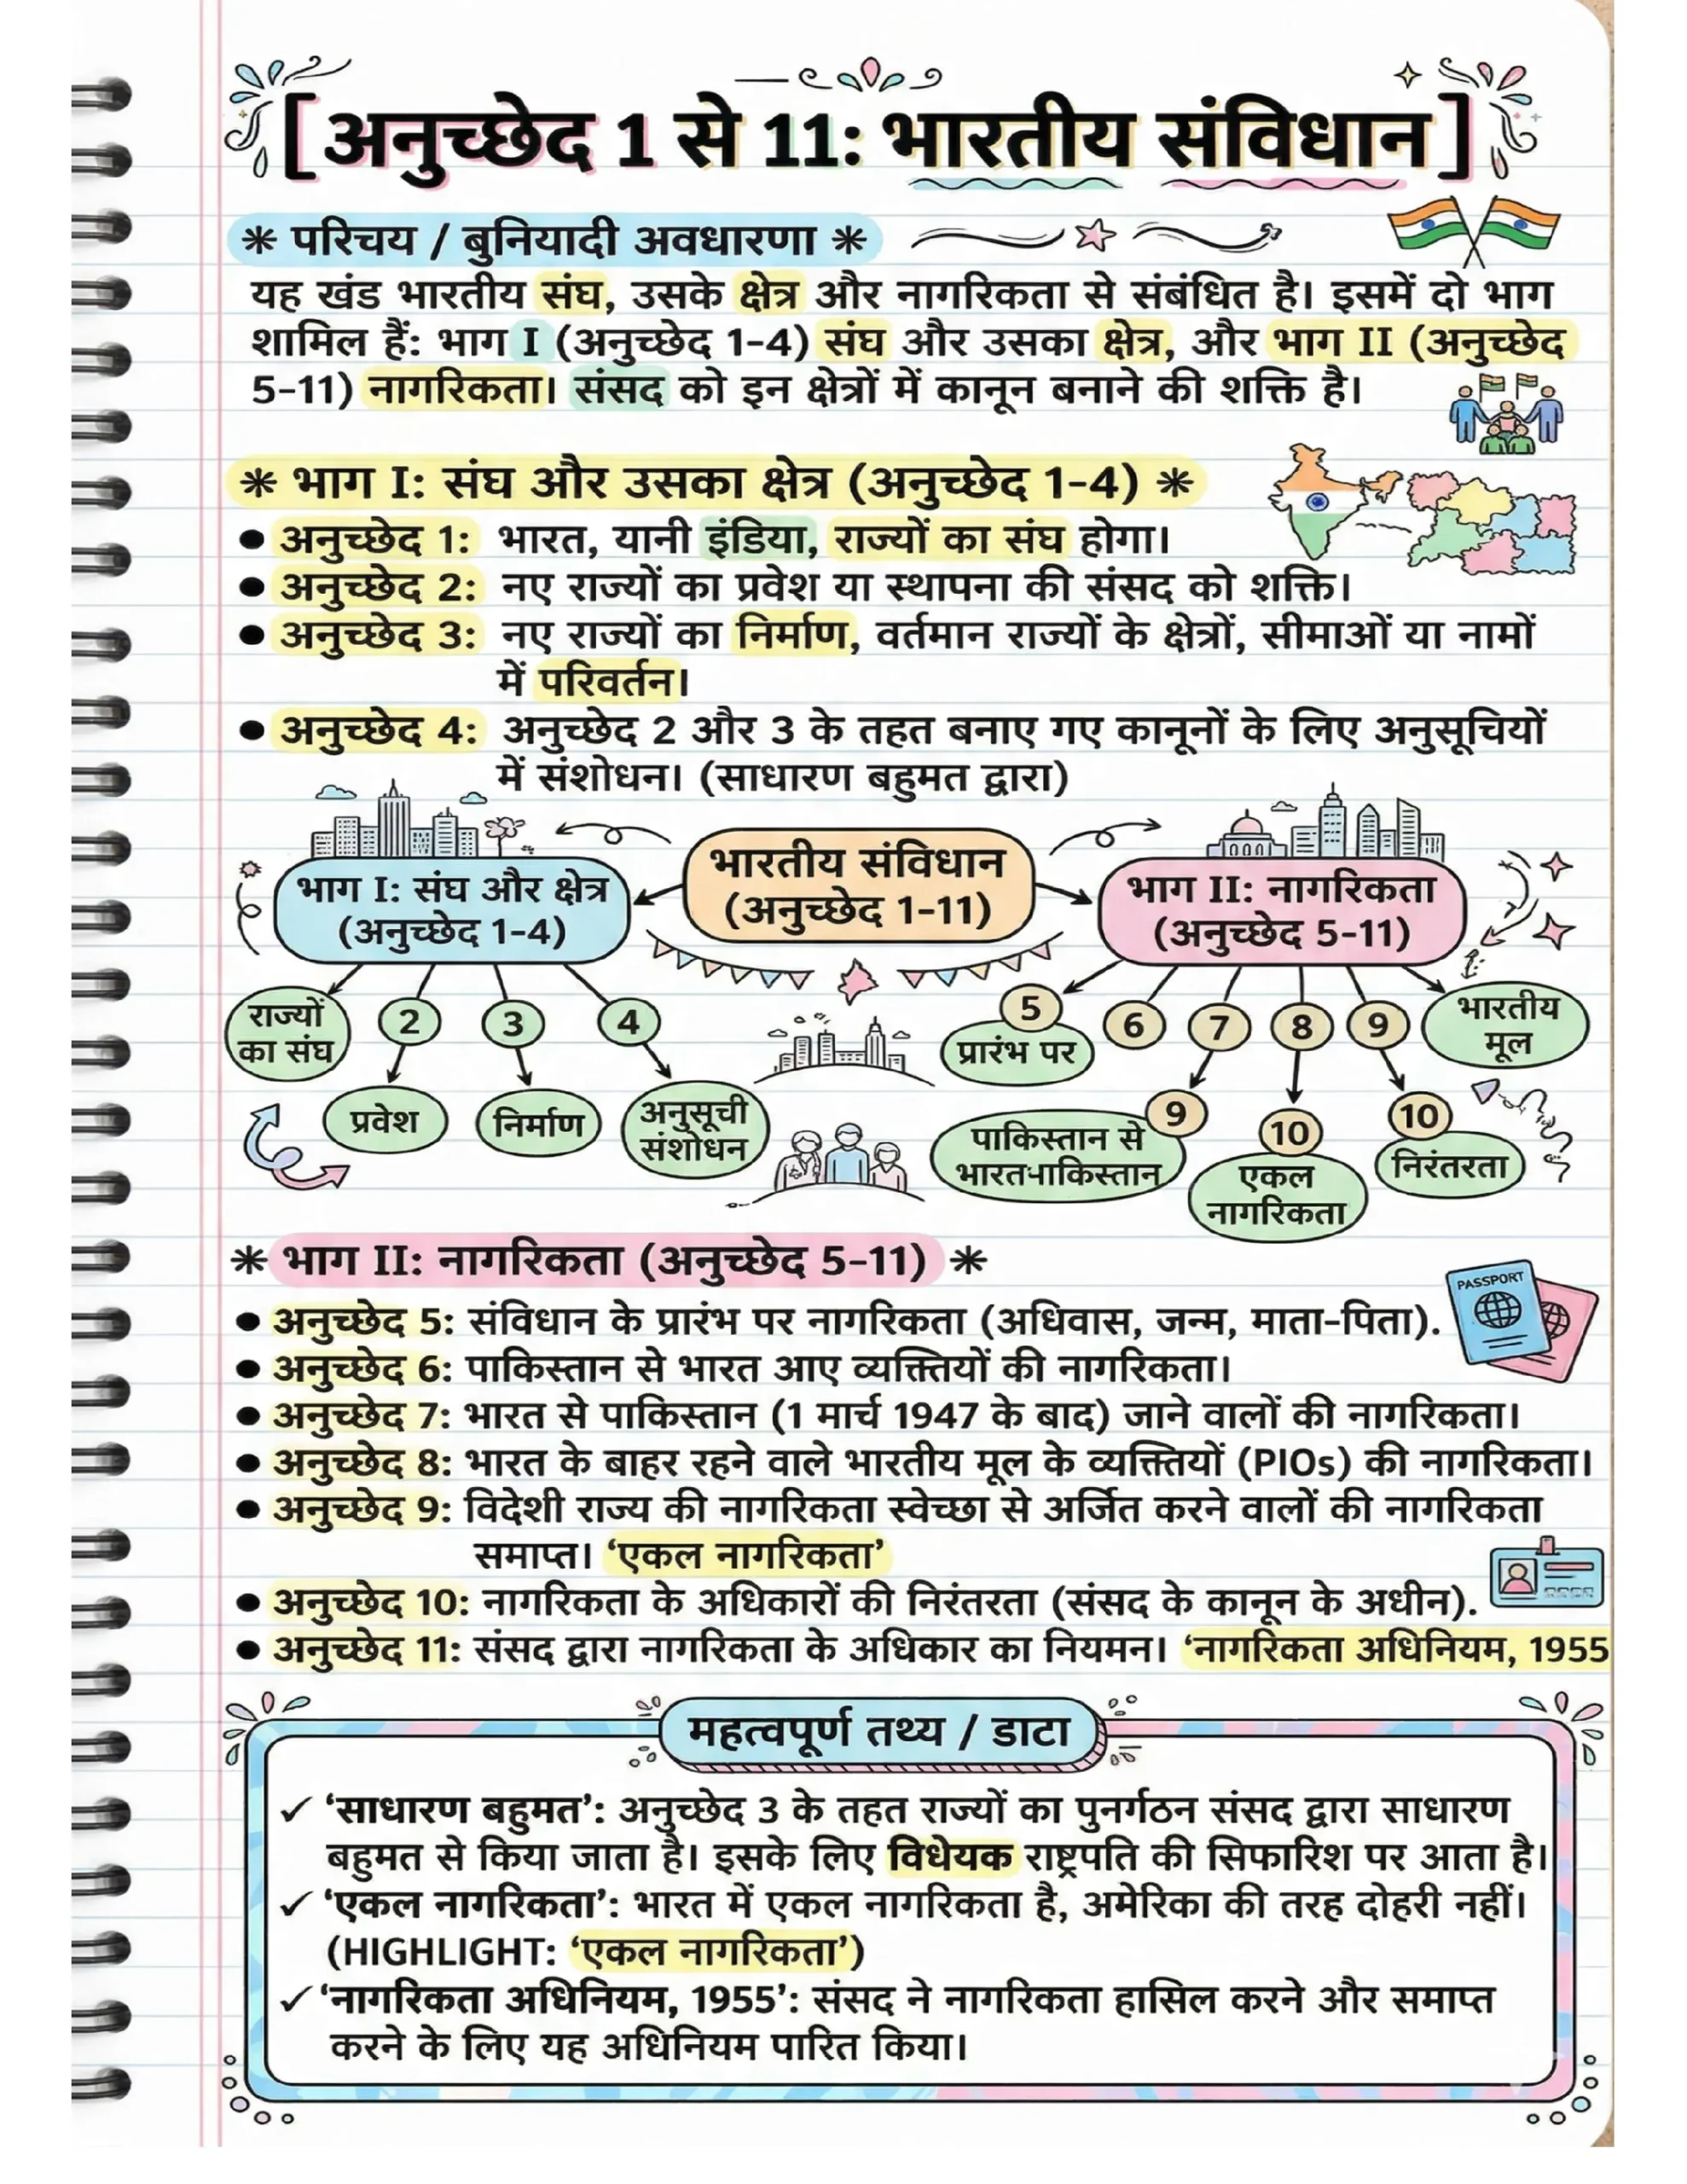 [अनुच्छेद 1 से 11: भारतीय संविधान]
* परिचय / बुनियादी अवधारणा *
यह खंड भारतीय संघ, उसके क्षेत्र और नागरिकता से संबंधित है। इसमें दो भाग
शामिल हैं: भाग I (अनुच्छेद 1-4) संघ और उसका क्षेत्र, और भाग II (अनुच्छेद
5-11) नागरिकता। संसद को इन क्षेत्रों में कानून बनाने की शक्ति है।
* भाग I: संघ और उसका क्षेत्र (अनुच्छेद 1-4) *
● अनुच्छेद 1: भारत, यानी इंडिया, राज्यों का संघ होगा।
● अनुच्छेद 2: नए राज्यों का प्रवेश या स्थापना की संसद को शक्ति।
● अनुच्छेद 3: नए राज्यों का निर्माण, वर्तमान राज्यों के क्षेत्रों, सीमाओं या नामों
में परिवर्तन।
● अनुच्छेद 4: अनुच्छेद 2 और 3 के तहत बनाए गए कानूनों के लिए अनुसूचियों
में संशोधन। (साधारण बहुमत द्वारा)
भारतीय संविधान
(अनुच्छेद 1-11)
भाग I: संघ और क्षेत्र
(अनुच्छेद 1-4)
भाग II: नागरिकता
(अनुच्छेद 5-11)
राज्यों
का संघ
2
3
4
प्रवेश
निर्माण
अनुसूची
संशोधन
5
प्रारंभ पर
6
7
8
9
भारतीय
मूल
9
पाकिस्तान से
भारत-पाकिस्तान
10
एकल
नागरिकता
10
निरंतरता
* भाग II: नागरिकता (अनुच्छेद 5-11) *
PASSPORT
● अनुच्छेद 5: संविधान के प्रारंभ पर नागरिकता (अधिवास, जन्म, माता-पिता).
● अनुच्छेद 6: पाकिस्तान से भारत आए व्यक्तियों की नागरिकता।
● अनुच्छेद 7: भारत से पाकिस्तान (1 मार्च 1947 के बाद) जाने वालों की नागरिकता।
● अनुच्छेद 8: भारत के बाहर रहने वाले भारतीय मूल के व्यक्तियों (PIOs) की नागरिकता।
● अनुच्छेद 9: विदेशी राज्य की नागरिकता स्वेच्छा से अर्जित करने वालों की नागरिकता
समाप्त। ‘एकल नागरिकता’
● अनुच्छेद 10: नागरिकता के अधिकारों की निरंतरता (संसद के कानून के अधीन).
● अनुच्छेद 11: संसद द्वारा नागरिकता के अधिकार का नियमन। ‘नागरिकता अधिनियम, 1955
महत्वपूर्ण तथ्य / डाटा
✓ ‘साधारण बहुमत’: अनुच्छेद 3 के तहत राज्यों का पुनर्गठन संसद द्वारा साधारण
बहुमत से किया जाता है। इसके लिए विधेयक राष्ट्रपति की सिफारिश पर आता है।
✓ ‘एकल नागरिकता’: भारत में एकल नागरिकता है, अमेरिका की तरह दोहरी नहीं।
(HIGHLIGHT: ‘एकल नागरिकता’)
✓ ‘नागरिकता अधिनियम, 1955’: संसद ने नागरिकता हासिल करने और समाप्त
करने के लिए यह अधिनियम पारित किया।